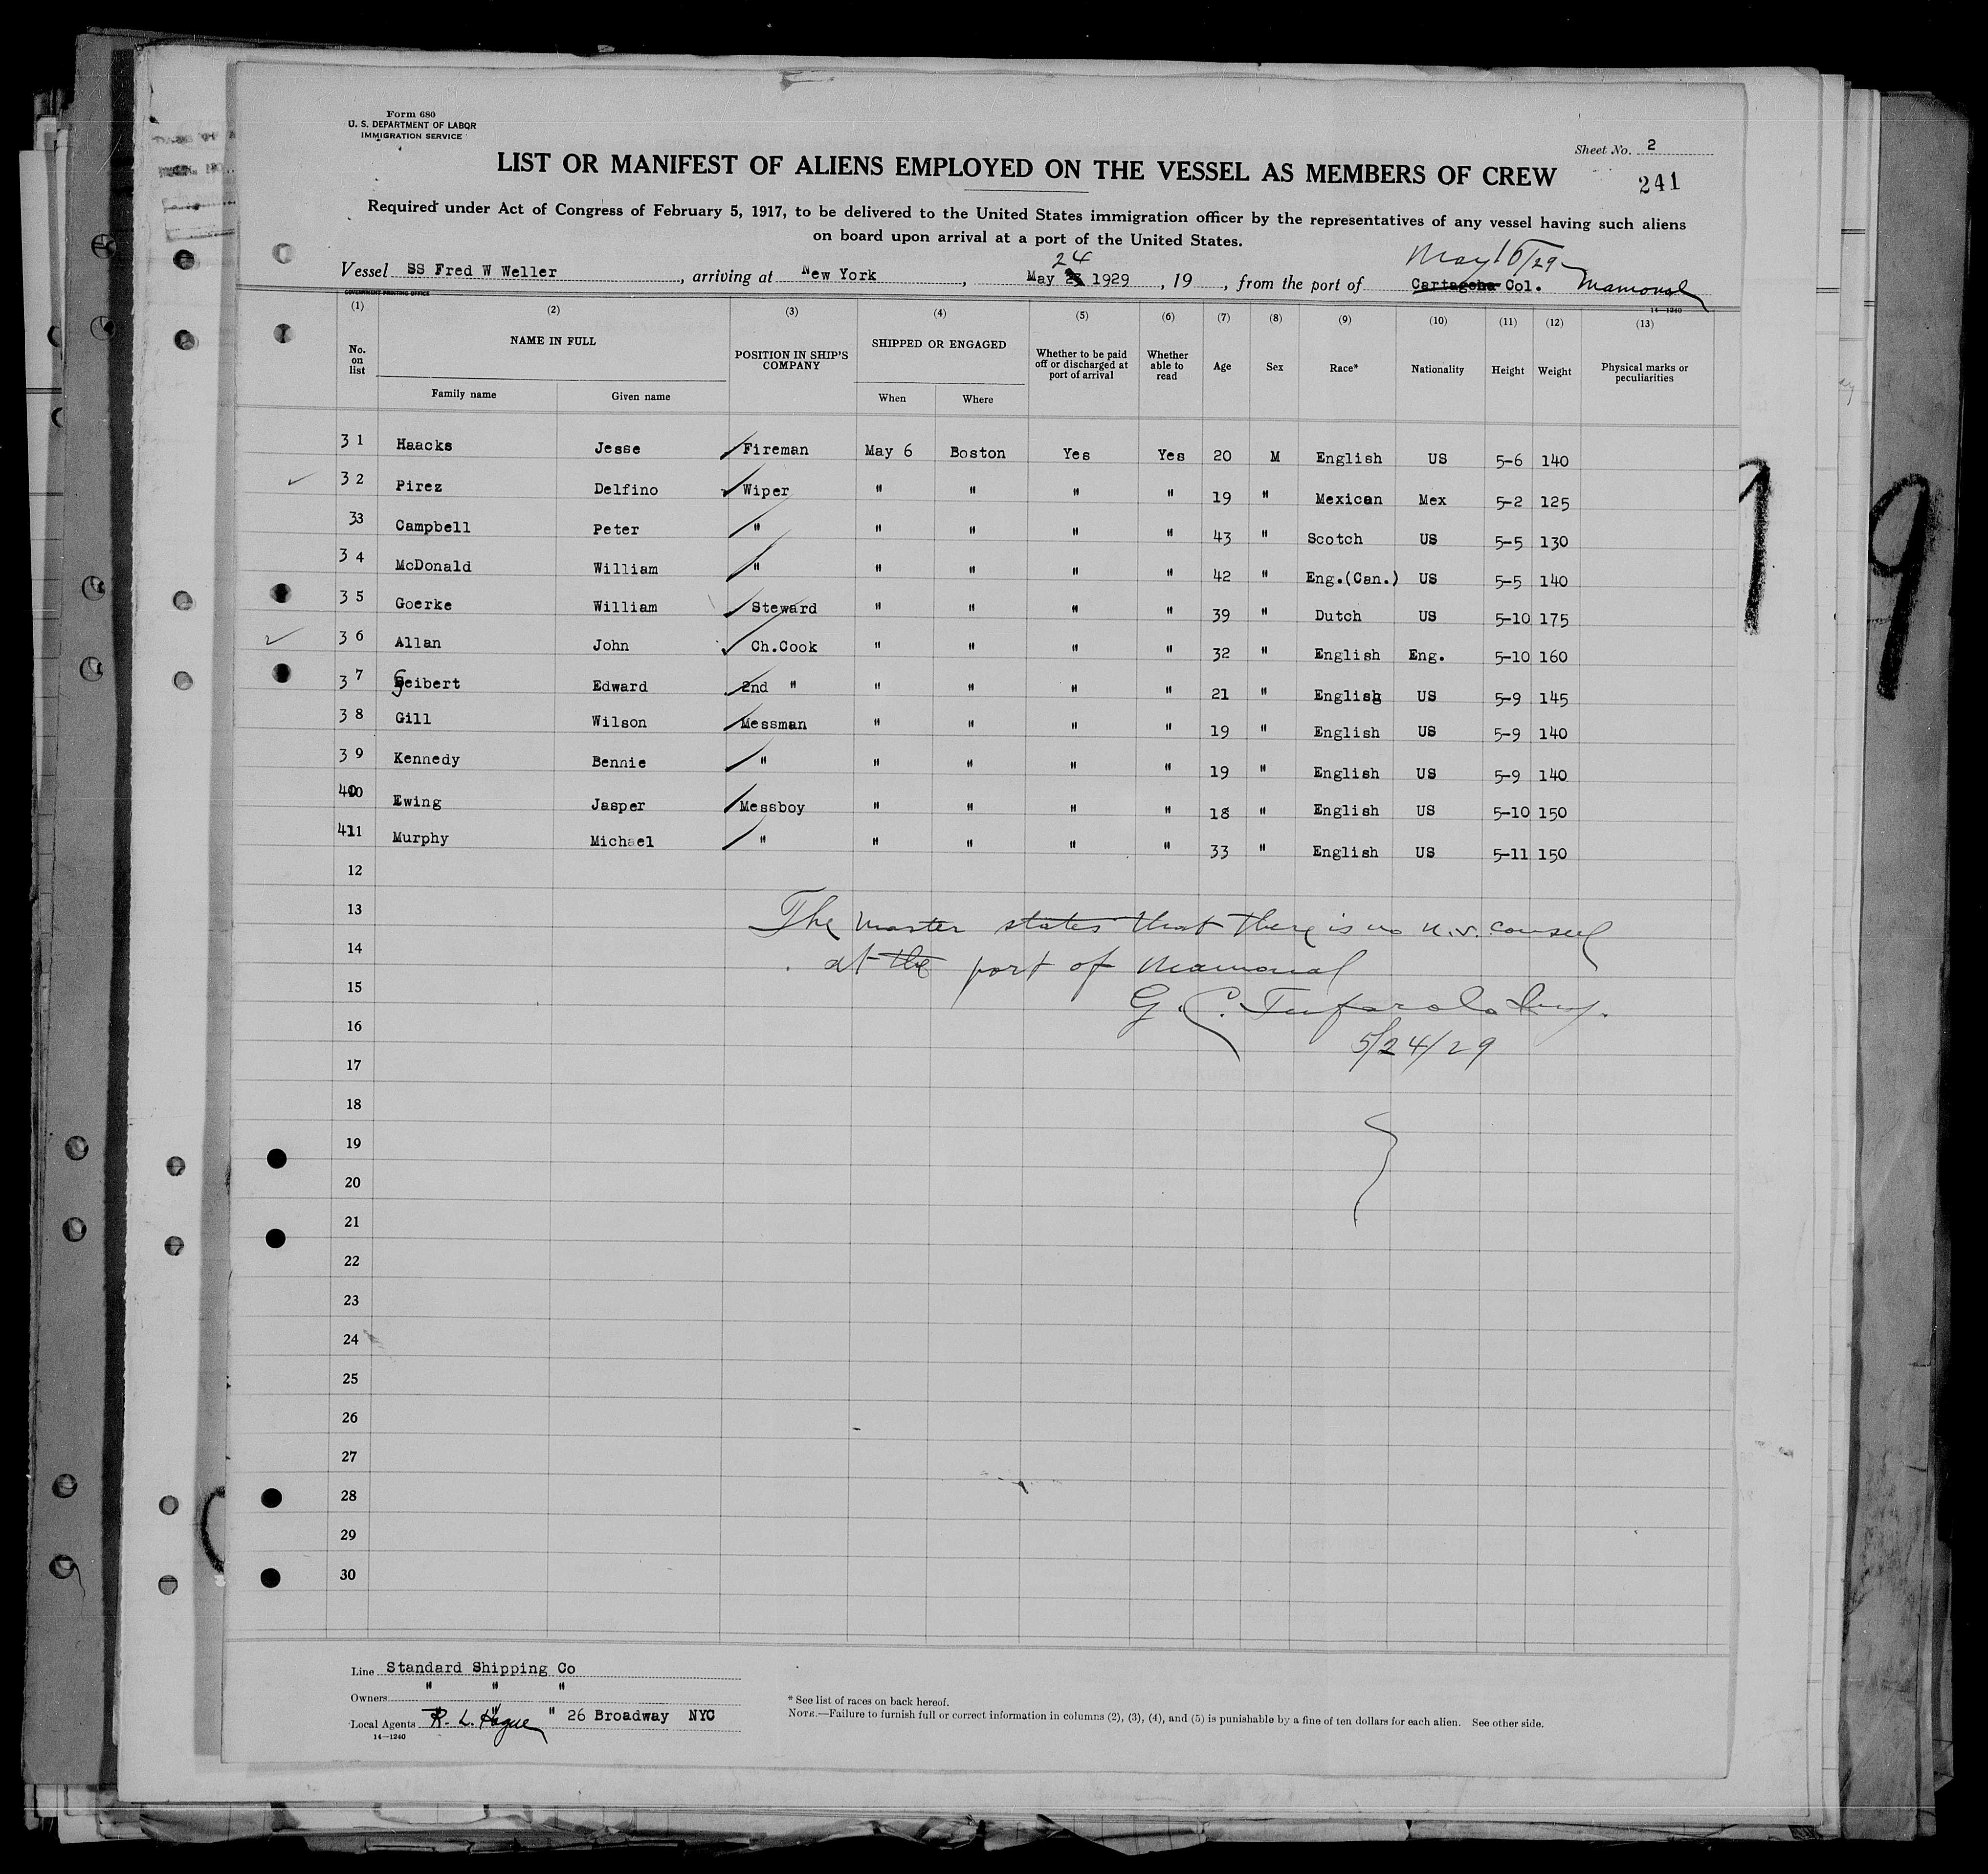 Form 680
U. S. DEPARTMENT OF LABOR
IMMIGRATION SERVICE
Sheet No. 2
LIST OR MANIFEST OF ALIENS EMPLOYED ON THE VESSEL AS MEMBERS OF CREW
241
Required under Act of Congress of February 5, 1917, to be delivered to the United States immigration officer by the representatives of any vessel having such aliens
on board upon arrival at a port of the United States.
24 May 16/29
Vessel SS Fred W Weller, arriving at New York, May 1929, 19, from the port of Cartagena Col. Mamonal
GOVERNMENT PRINTING OFFICE 14—1240
(1) (2) (3) (4) (5) (6) (7) (8) (9) (10) (11) (12) (13)
No. on list NAME IN FULL POSITION IN SHIP'S COMPANY SHIPPED OR ENGAGED Whether to be paid off or discharged at port of arrival Whether able to read Age Sex Race* Nationality Height Weight Physical marks or peculiarities
Family name Given name When Where
31 Haacks Jesse Fireman May 6 Boston Yes Yes 20 M English US 5-6 140
32 Pirez Delfino Wiper " " " " 19 " Mexican Mex 5-2 125
33 Campbell Peter " " " " " 43 " Scotch US 5-5 130
34 McDonald William " " " " " 42 " Eng.(Can.) US 5-5 140
35 Goerke William Steward " " " " 39 " Dutch US 5-10 175
36 Allan John Ch.Cook " " " " 32 " English Eng. 5-10 160
37 Geibert Edward 2nd " " " " " 21 " Englisg US 5-9 145
38 Gill Wilson Messman " " " " 19 " English US 5-9 140
39 Kennedy Bennie " " " " " 19 " English US 5-9 140
40 Ewing Jasper Messboy " " " " 18 " English US 5-10 150
41 Murphy Michael " " " " " 33 " English US 5-11 150
12
13
The master states that there is no U.S. consul
14
at the port of Mamonal
15
G. C. Tufarolo Insp.
16
5/24/29
17
18
19
20
21
22
23
24
25
26
27
28
29
30
Line Standard Shipping Co
Owners " " "
Local Agents R. L. Hague " 26 Broadway NYC
14—1240
* See list of races on back hereof.
NOTE.—Failure to furnish full or correct information in columns (2), (3), (4), and (5) is punishable by a fine of ten dollars for each alien. See other side.
9